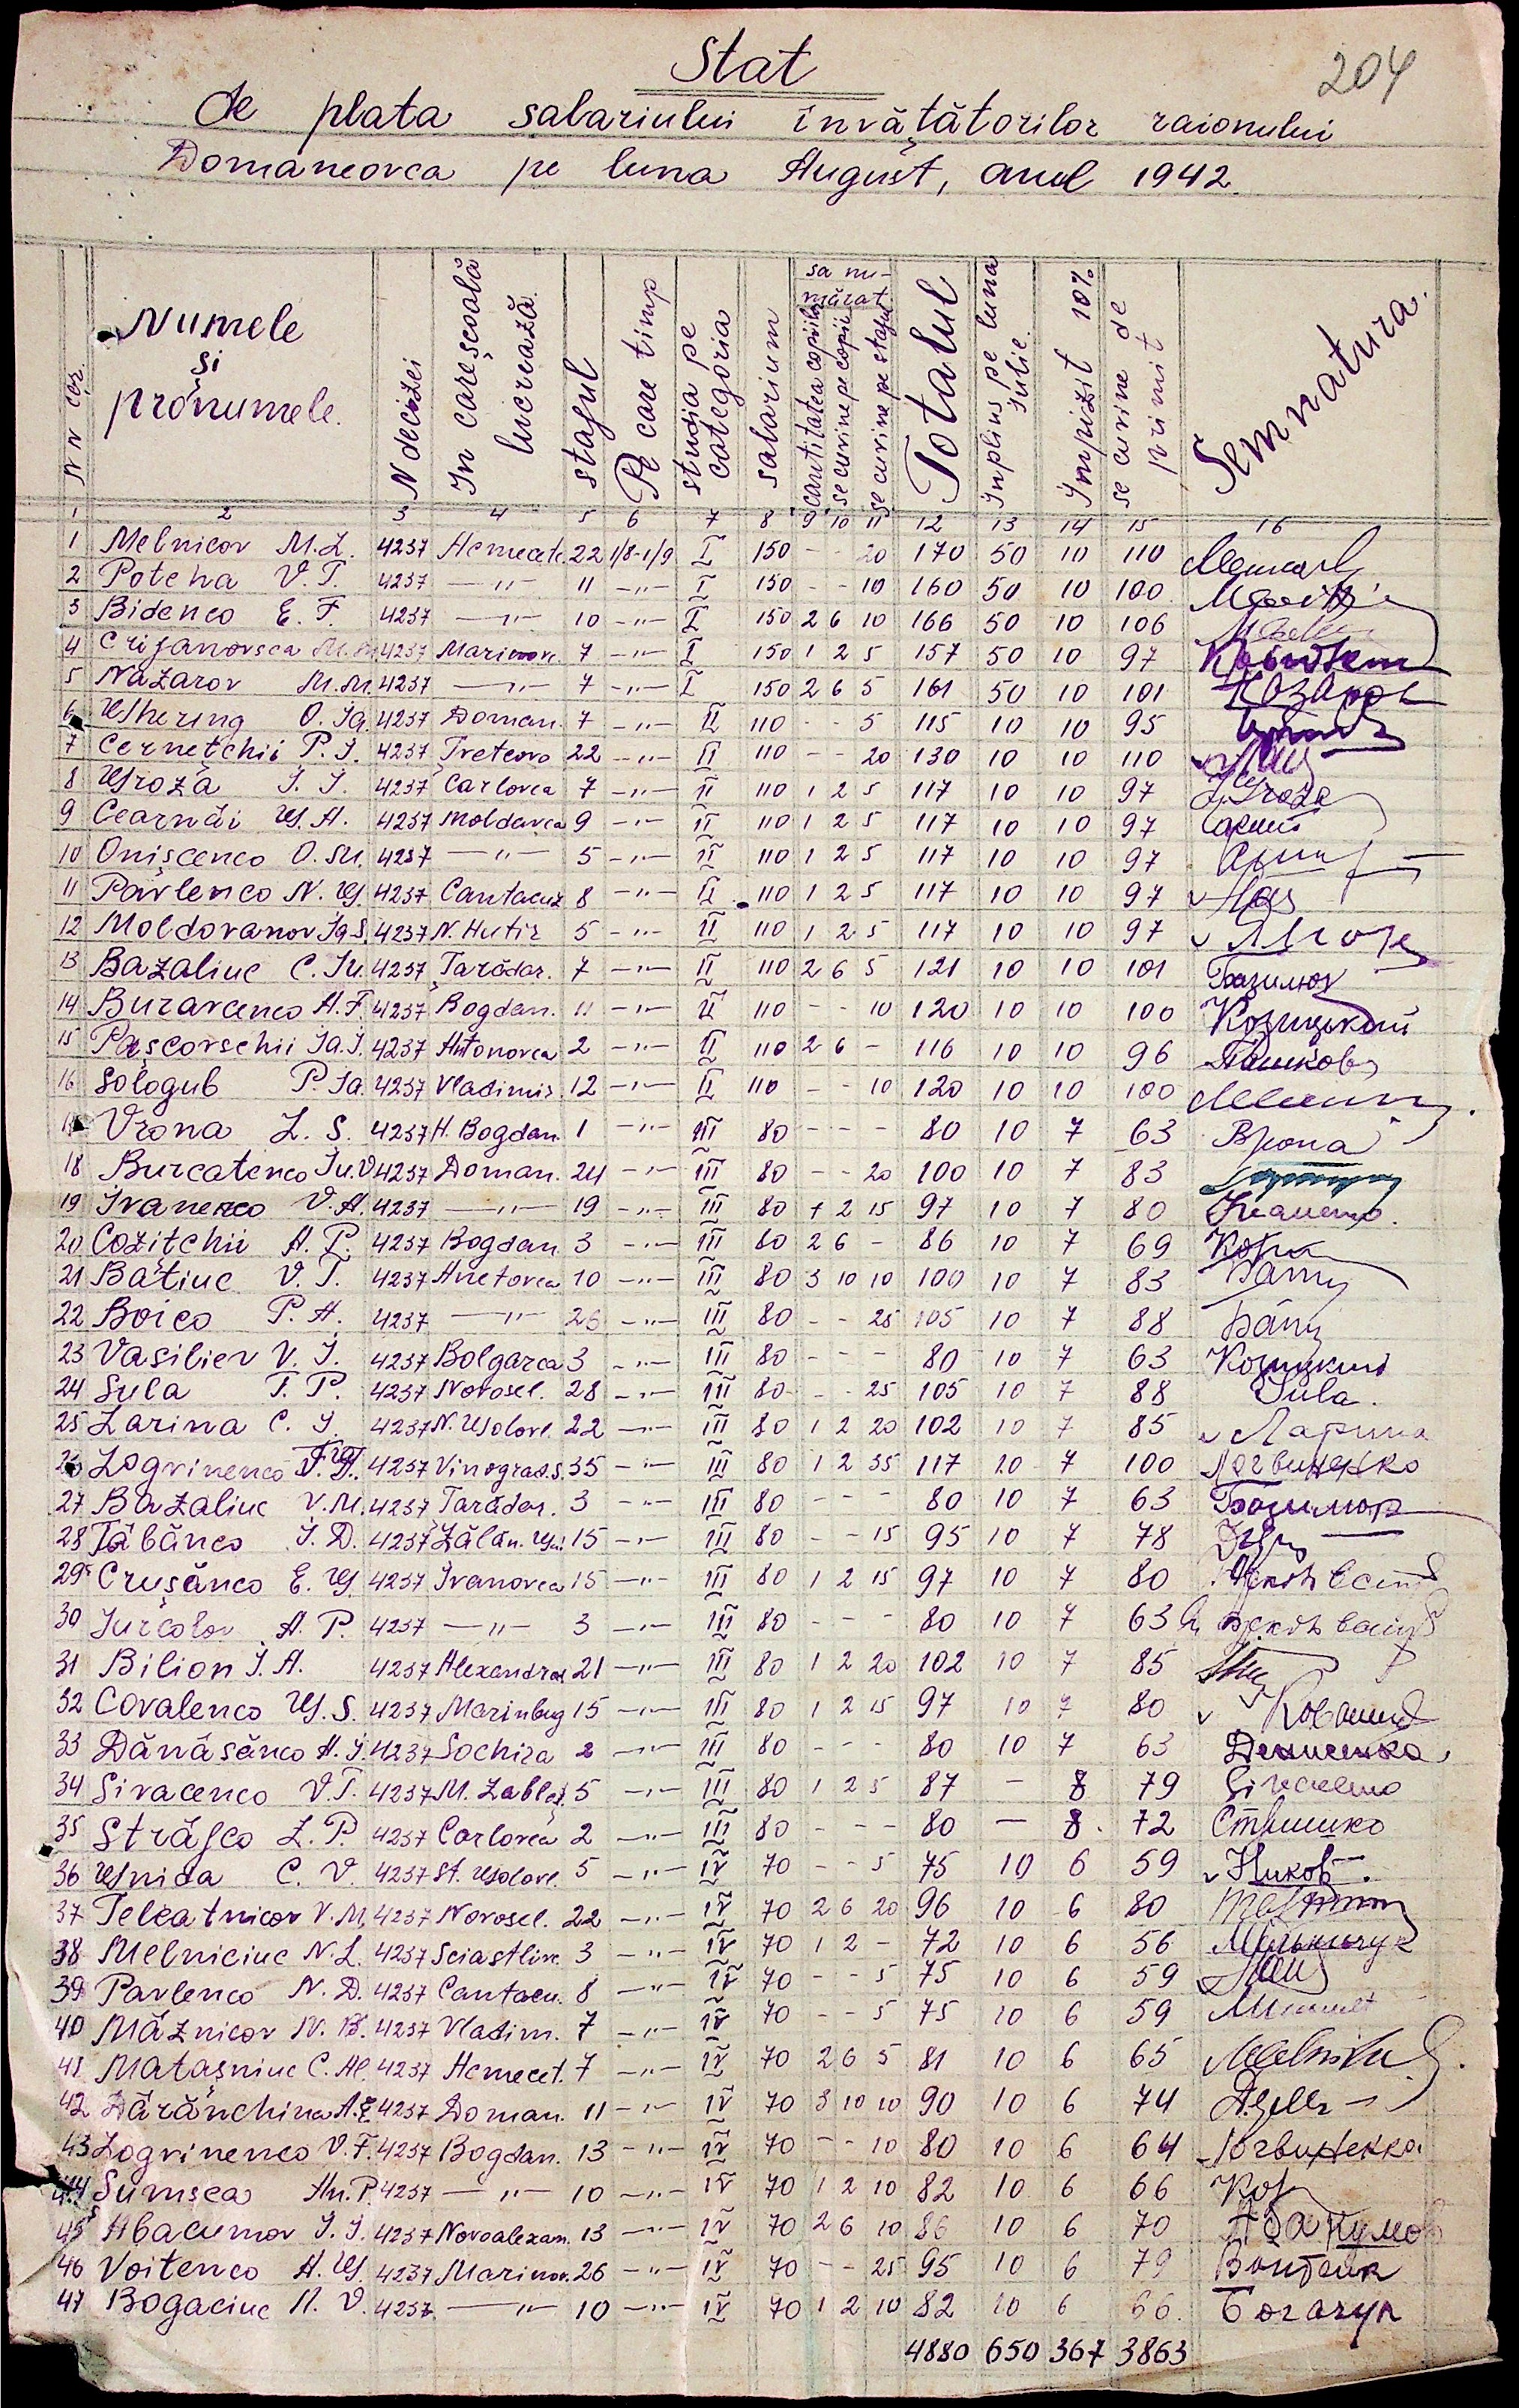 204
Stat
de plata salariului învățătorilor raionului
Domaneovca pe luna August, anul 1942.
N N cor. Numele și pronumele. N decizei In care școală lucrează. stajul Pe care timp studia pe categoria salarium sa numărat cantitatea copiilor se cuvine pe copii se cuvine pe stajul Totalul Inplins pe luna Iulie. Impizit 10% se cuvine de primit Semnatura.
1 2 3 4 5 6 7 8 9 10 11 12 13 14 15 16
1 Melnicov M.L. 4237 Acmecete 22 1/8-1/9 I 150 - - 20 170 50 10 110
2 Poteha V.T. 4237 —"— 11 -"- I 150 - - 10 160 50 10 100
3 Bidenco E.F. 4237 —"— 10 -"- I 150 2 6 10 166 50 10 106
4 Crijanovsca 4237 Marinov. 7 -"- I 150 1 2 5 157 50 10 97
5 Nazarov M.M. 4237 —"— 7 -"- I 150 2 6 5 161 50 10 101
6 O.Ia. 4237 Doman. 7 -"- II 110 - - 5 115 10 10 95
7 Cernețchii P.I. 4237 22 -"- II 110 - - 20 130 10 10 110
8 Groza I.I. 4237 Carlovca 7 -"- II 110 1 2 5 117 10 10 97 Groza
9 Cearnăi G.A. 4237 Moldavca 9 -"- II 110 1 2 5 117 10 10 97
10 Onișcenco O.M. 4237 —"— 5 -"- II 110 1 2 5 117 10 10 97
11 Pavlenco N.G. 4237 Cantacuz 8 -"- II 110 1 2 5 117 10 10 97
12 Moldovanov Ia.S. 4237 N. Hutir 5 -"- II 110 1 2 5 117 10 10 97
13 Bazaliuc C.Iu. 4237 Țarădar. 7 -"- II 110 2 6 5 121 10 10 101 Базилюк
14 Buravcenco A.F. 4237 Bogdan. 11 -"- II 110 - - 10 120 10 10 100 Козицький
15 Pașcovschii Ia.I. 4237 Antonovca 2 -"- II 110 2 6 - 116 10 10 96
16 Sologub P.Ia. 4237 Vladimir. 12 -"- II 110 - - 10 120 10 10 100
17 Vrona L.S. 4237 H. Bogdan. 1 -"- III 80 - - - 80 10 7 63 Врона
18 Burcatenco Iu.V. 4237 Doman. 24 -"- III 80 - - 20 100 10 7 83
19 Ivanenco V.A. 4237 —"— 19 -"- III 80 1 2 15 97 10 7 80
20 Cozițchii A.P. 4237 Bogdan 3 -"- III 80 2 6 - 86 10 7 69
21 Batiuc V.T. 4237 Anetovca 10 -"- III 80 3 10 10 100 10 7 83
22 Boico P.A. 4237 —"— 26 -"- III 80 - - 25 105 10 7 88
23 Vasiliev V.I. 4237 Bolgarca 3 -"- III 80 - - - 80 10 7 63 Козицкий
24 Sula T.P. 4237 Novosel. 28 -"- III 80 - - 25 105 10 7 88 Sula.
25 Larina C.I. 4237 N. Golovl. 22 -"- III 80 1 2 20 102 10 7 85 Ларина
26 Logvinenco 4237 Vinograd.s. 35 -"- III 80 1 2 35 117 10 7 100 Логвиненко
27 Bazaliuc V.M. 4237 Țarădar. 3 -"- III 80 - - - 80 10 7 63
28 Țăbănco I.D. 4237 15 -"- III 80 - - 15 95 10 7 78
29 Crușănco E.G. 4237 Ivanovca 15 -"- III 80 1 2 15 97 10 7 80
30 Iurcolov A.P. 4237 —"— 3 -"- III 80 - - - 80 10 7 63
31 Bilion I.A. 4237 Alexandra 21 -"- III 80 1 2 20 102 10 7 85
32 Covalenco G.S. 4237 Marinbug 15 -"- III 80 1 2 15 97 10 7 80
33 Dănăsănco A.I. 4237 Sochira 2 -"- III 80 - - - 80 10 7 63 Денисенко
34 Sivacenco V.T. 4237 5 -"- III 80 1 2 5 87 - 8 79
35 Străjco L.P. 4237 Carlovca 2 -"- III 80 - - - 80 - 8 72
36 Gnida C.V. 4237 St. Golovl. 5 -"- IV 70 - - 5 75 10 6 59
37 Teleatnicov V.M. 4237 Novosel. 22 -"- IV 70 2 6 20 96 10 6 80
38 Melniciuc N.L. 4237 Sciastliv. 3 -"- IV 70 1 2 - 72 10 6 56 Мельничук
39 Pavlenco N.D. 4237 Cantacu. 8 -"- IV 70 - - 5 75 10 6 59
40 Măznicov N.B. 4237 Vladim. 7 -"- IV 70 - - 5 75 10 6 59
41 Matașniuc C. 4237 Acmecet. 7 -"- IV 70 2 6 5 81 10 6 65
42 Dărănchina 4237 Doman. 11 -"- IV 70 3 10 10 90 10 6 74
43 Logvinenco V.F. 4237 Bogdan. 13 -"- IV 70 - - 10 80 10 6 64 Логвиненко
44 Sumsca An.P. 4237 —"— 10 -"- IV 70 1 2 10 82 10 6 66
45 Abacumov I.I. 4237 Novoalexan. 13 -"- IV 70 2 6 10 86 10 6 70 Абакумов
46 Voitenco A.G. 4237 Marinov. 26 -"- IV 70 - - 25 95 10 6 79
47 Bogaciuc N.V. 4237 —"— 10 -"- IV 70 1 2 10 82 10 6 66. Богачук
4880 650 367 3863